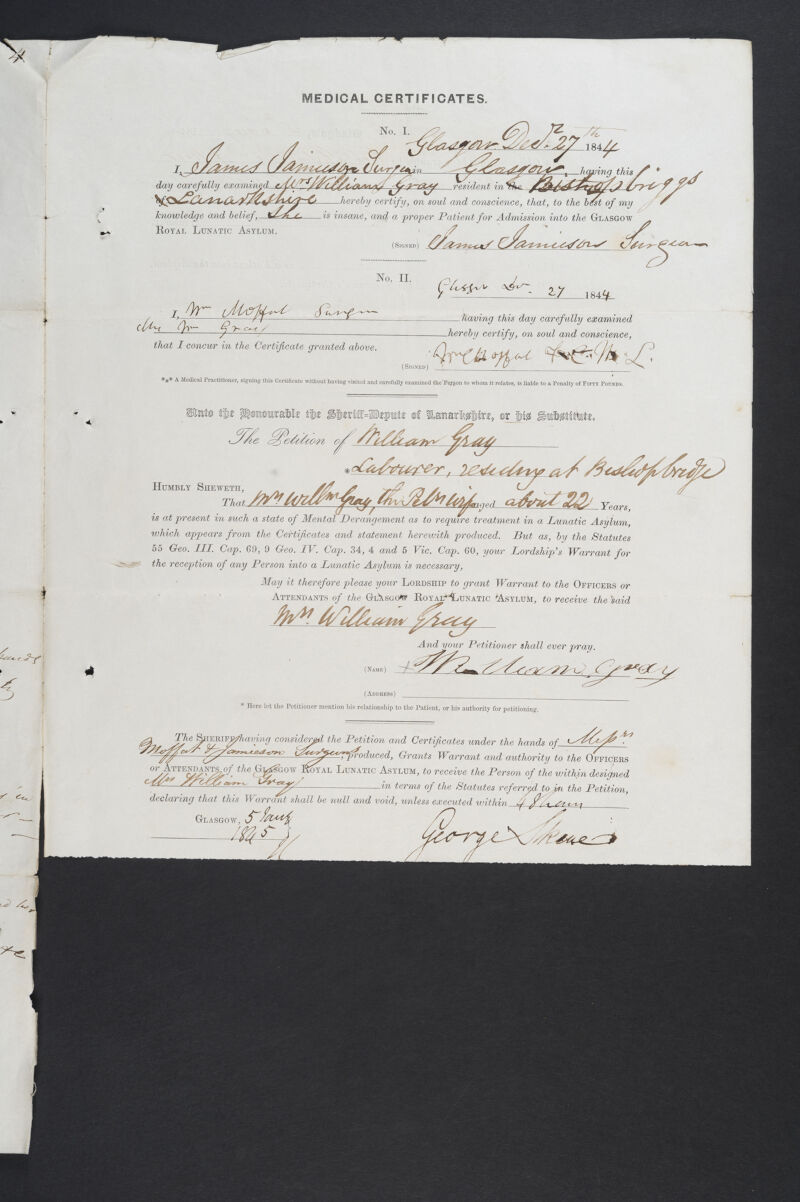 MEDICAL CERTIFICATES.
No. I.
Glasgow Decr. 27th 1844
I, James Jamieson Surgeon in Glasgow, having this
day carefully examined Mrs William Gray resident in the Bishopbriggs
of Lanarkshire hereby certify, on soul and conscience, that, to the best of my
knowledge and belief, She is insane, and a proper Patient for Admission into the GLASGOW
ROYAL LUNATIC ASYLUM.
(SIGNED) James Jamieson Surgeon
No. II.
27 1844
I, Wm Moffat Surgeon having this day carefully examined
Mrs Wm Gray hereby certify, on soul and conscience,
that I concur in the Certificate granted above.
(SIGNED) Wm Moffat
*** A Medical Practitioner, signing this Certificate without having visited and carefully examined the Person to whom it relates, is liable to a Penalty of FIFTY POUNDS.
Unto the Honourable the Sheriff-Depute of Lanarkshire, or his Substitute.
The Petition of William Gray
*Labourer, residing at Bishopbridge
HUMBLY SHEWETH,
That Mrs Willm Gray, the Petrs wife aged about 22 Years,
is at present in such a state of Mental Derangement as to require treatment in a Lunatic Asylum,
which appears from the Certificates and statement herewith produced. But as, by the Statutes
55 Geo. III. Cap. 69, 9 Geo. IV. Cap. 34, 4 and 5 Vic. Cap. 60, your Lordship's Warrant for
the reception of any Person into a Lunatic Asylum is necessary,
May it therefore please your LORDSHIP to grant Warrant to the OFFICERS or
ATTENDANTS of the GLASGOW ROYAL LUNATIC ASYLUM, to receive the said
Mrs William Gray
And your Petitioner shall ever pray.
(NAME) William Gray
(ADDRESS)
* Here let the Petitioner mention his relationship to the Patient, or his authority for petitioning.
The SHERIFF having considered the Petition and Certificates under the hands of Messrs
Moffat & Jamieson Surgeons, produced, Grants Warrant and authority to the OFFICERS
or ATTENDANTS of the GLASGOW ROYAL LUNATIC ASYLUM, to receive the Person of the within designed
Mrs William Gray in terms of the Statutes referred to in the Petition,
declaring that this Warrant shall be null and void, unless executed within
GLASGOW, 5 Jany
1845
George Skene